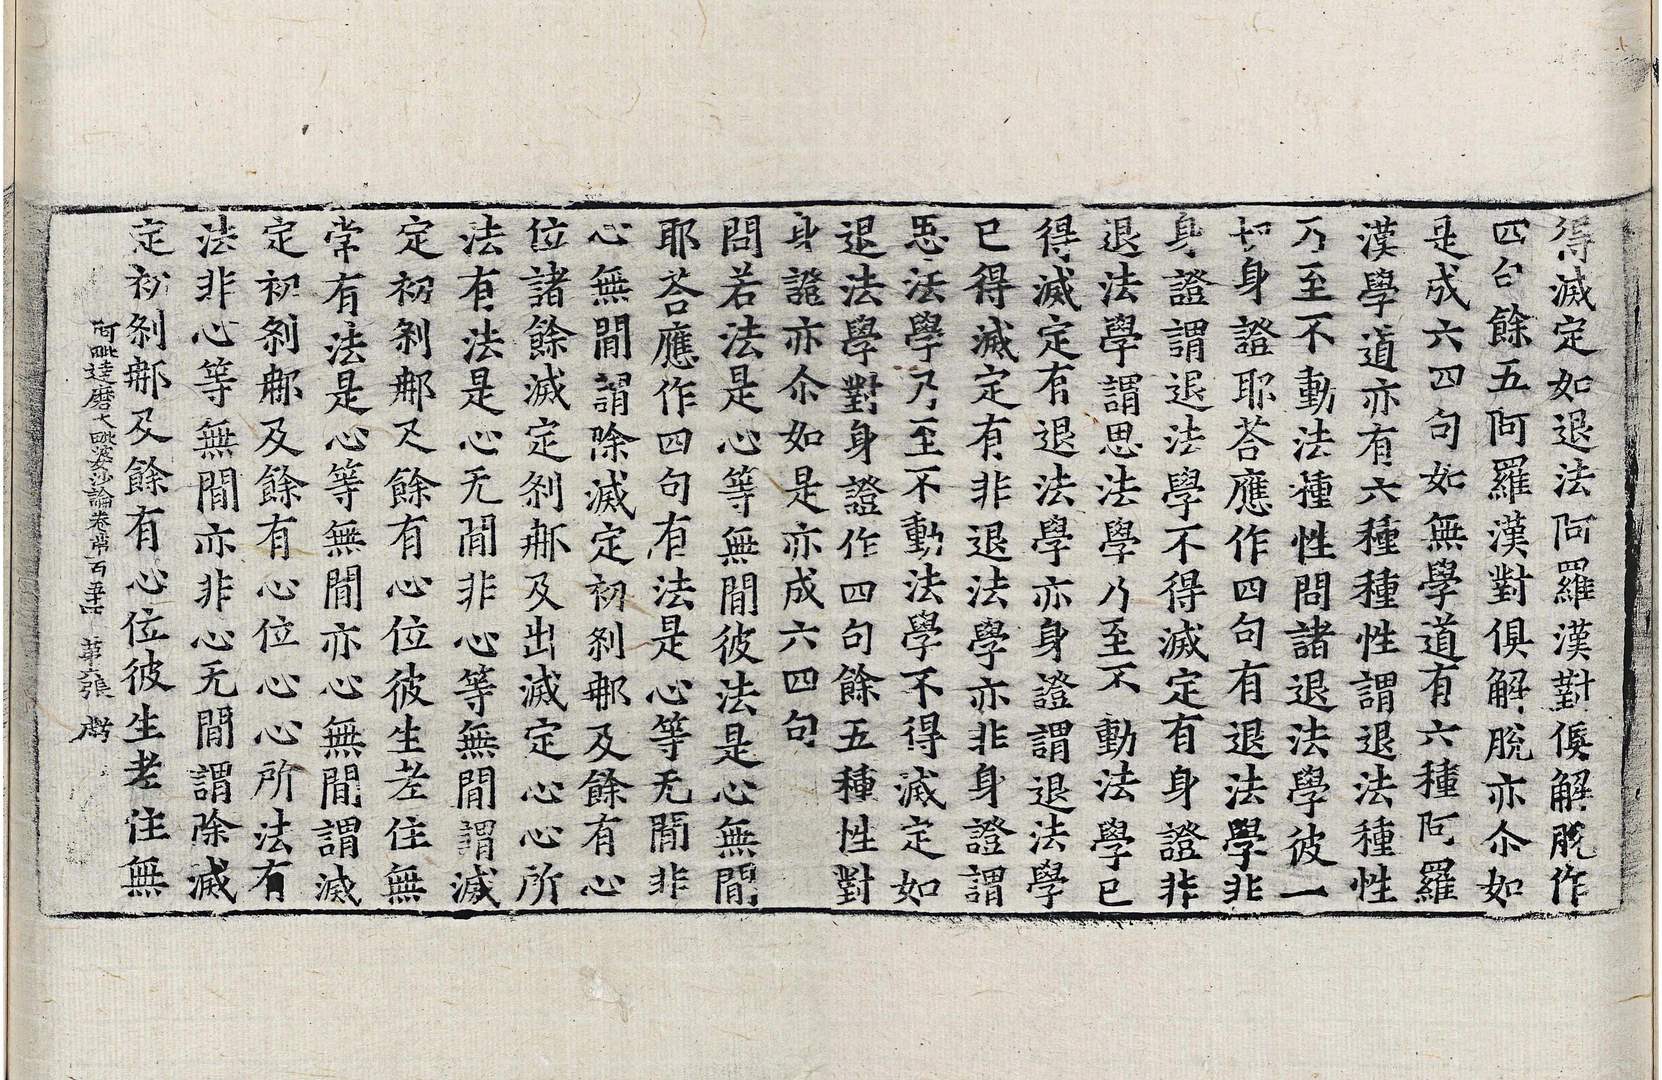 得滅定如退法阿羅漢對俱解脫作
四句餘五阿羅漢對俱解脫亦尒如
是成六四句如無學道有六種阿羅
漢學道亦有六種種性謂退法種性
乃至不動法種性問諸退法學彼一
切身證耶荅應作四句有退法學非
身證謂退法學不得滅定有身證非
退法學謂思法學乃至不動法學已
得滅定有退法學亦身證謂退法學
已得滅定有非退法學亦非身證謂
思法學乃至不動法學不得滅定如
退法學對身證作四句餘五種性對
身證亦尒如是亦成六四句
問若法是心等無閒彼法是心無閒
耶荅應作四句有法是心等无閒非
心無閒謂除滅定初刹那及餘有心
位諸餘滅定刹那及出滅定心心所
法有法是心无閒非心等無閒謂滅
定初刹那及餘有心位彼生老住無
常有法是心等無閒亦心無閒謂滅
定初刹那及餘有心位心心所法有
法非心等無閒亦非心无閒謂除滅
定初刹那及餘有心位彼生老住無
阿毗達磨大毗婆沙論卷第一百五十四 第六張